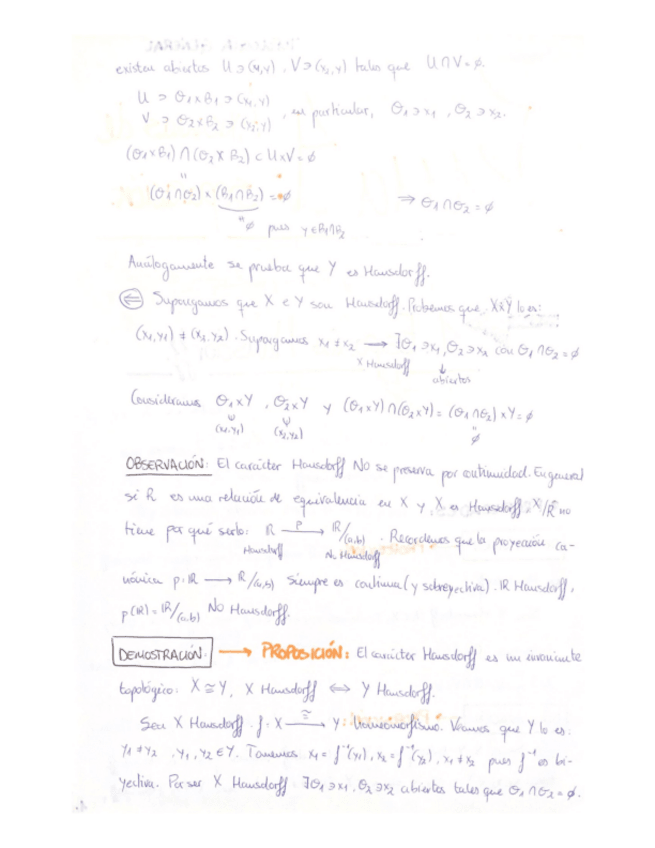 existen abiertos U ∋ (x₁,y), V ∋ (x₂,y) tales que U∩V=∅.
U ⊃ Θ₁×B₁ ∋ (x₁,y)
V ⊃ Θ₂×B₂ ∋ (x₂,y) , en particular, Θ₁∋x₁, Θ₂∋x₂.
(Θ₁×B₁)∩(Θ₂×B₂) ⊂ U×V=∅
"
(Θ₁∩Θ₂)×(B₁∩B₂)=∅ ⇒ Θ₁∩Θ₂=∅
∅ pues y∈B₁∩B₂
Análogamente se prueba que Y es Hausdorff.
⇐ Supongamos que X e Y son Hausdorff. Probemos que X×Y lo es:
(x₁,y₁) ≠ (x₂,y₂). Supongamos x₁≠x₂ → ∃Θ₁∋x₁, Θ₂∋x₂ con Θ₁∩Θ₂=∅
X Hausdorff abiertos
Consideramos Θ₁×Y, Θ₂×Y y (Θ₁×Y)∩(Θ₂×Y)=(Θ₁∩Θ₂)×Y=∅
(x₁,y₁) (x₂,y₂) ∅
OBSERVACIÓN: El carácter Hausdorff NO se preserva por continuidad. En general
si R es una relación de equivalencia en X y X es Hausdorff, X/R no
tiene por qué serlo: ℝ —p→ ℝ/(a,b). Recordemos que la proyección ca-
Hausdorff No Hausdorff
nónica p: ℝ → ℝ/(a,b) siempre es continua (y sobreyectiva). ℝ Hausdorff,
p(ℝ)=ℝ/(a,b) NO Hausdorff.
DEMOSTRACIÓN → PROPOSICIÓN: El carácter Hausdorff es un invariante
topológico: X≅Y, X Hausdorff ⇔ Y Hausdorff.
Sea X Hausdorff. f: X —≅→ Y homeomorfismo. Veamos que Y lo es:
y₁≠y₂, y₁,y₂∈Y. Tenemos x₁=f⁻¹(y₁), x₂=f⁻¹(y₂), x₁≠x₂ pues f⁻¹ es bi-
yectiva. Por ser X Hausdorff ∃Θ₁∋x₁, Θ₂∋x₂ abiertos tales que Θ₁∩Θ₂=∅.